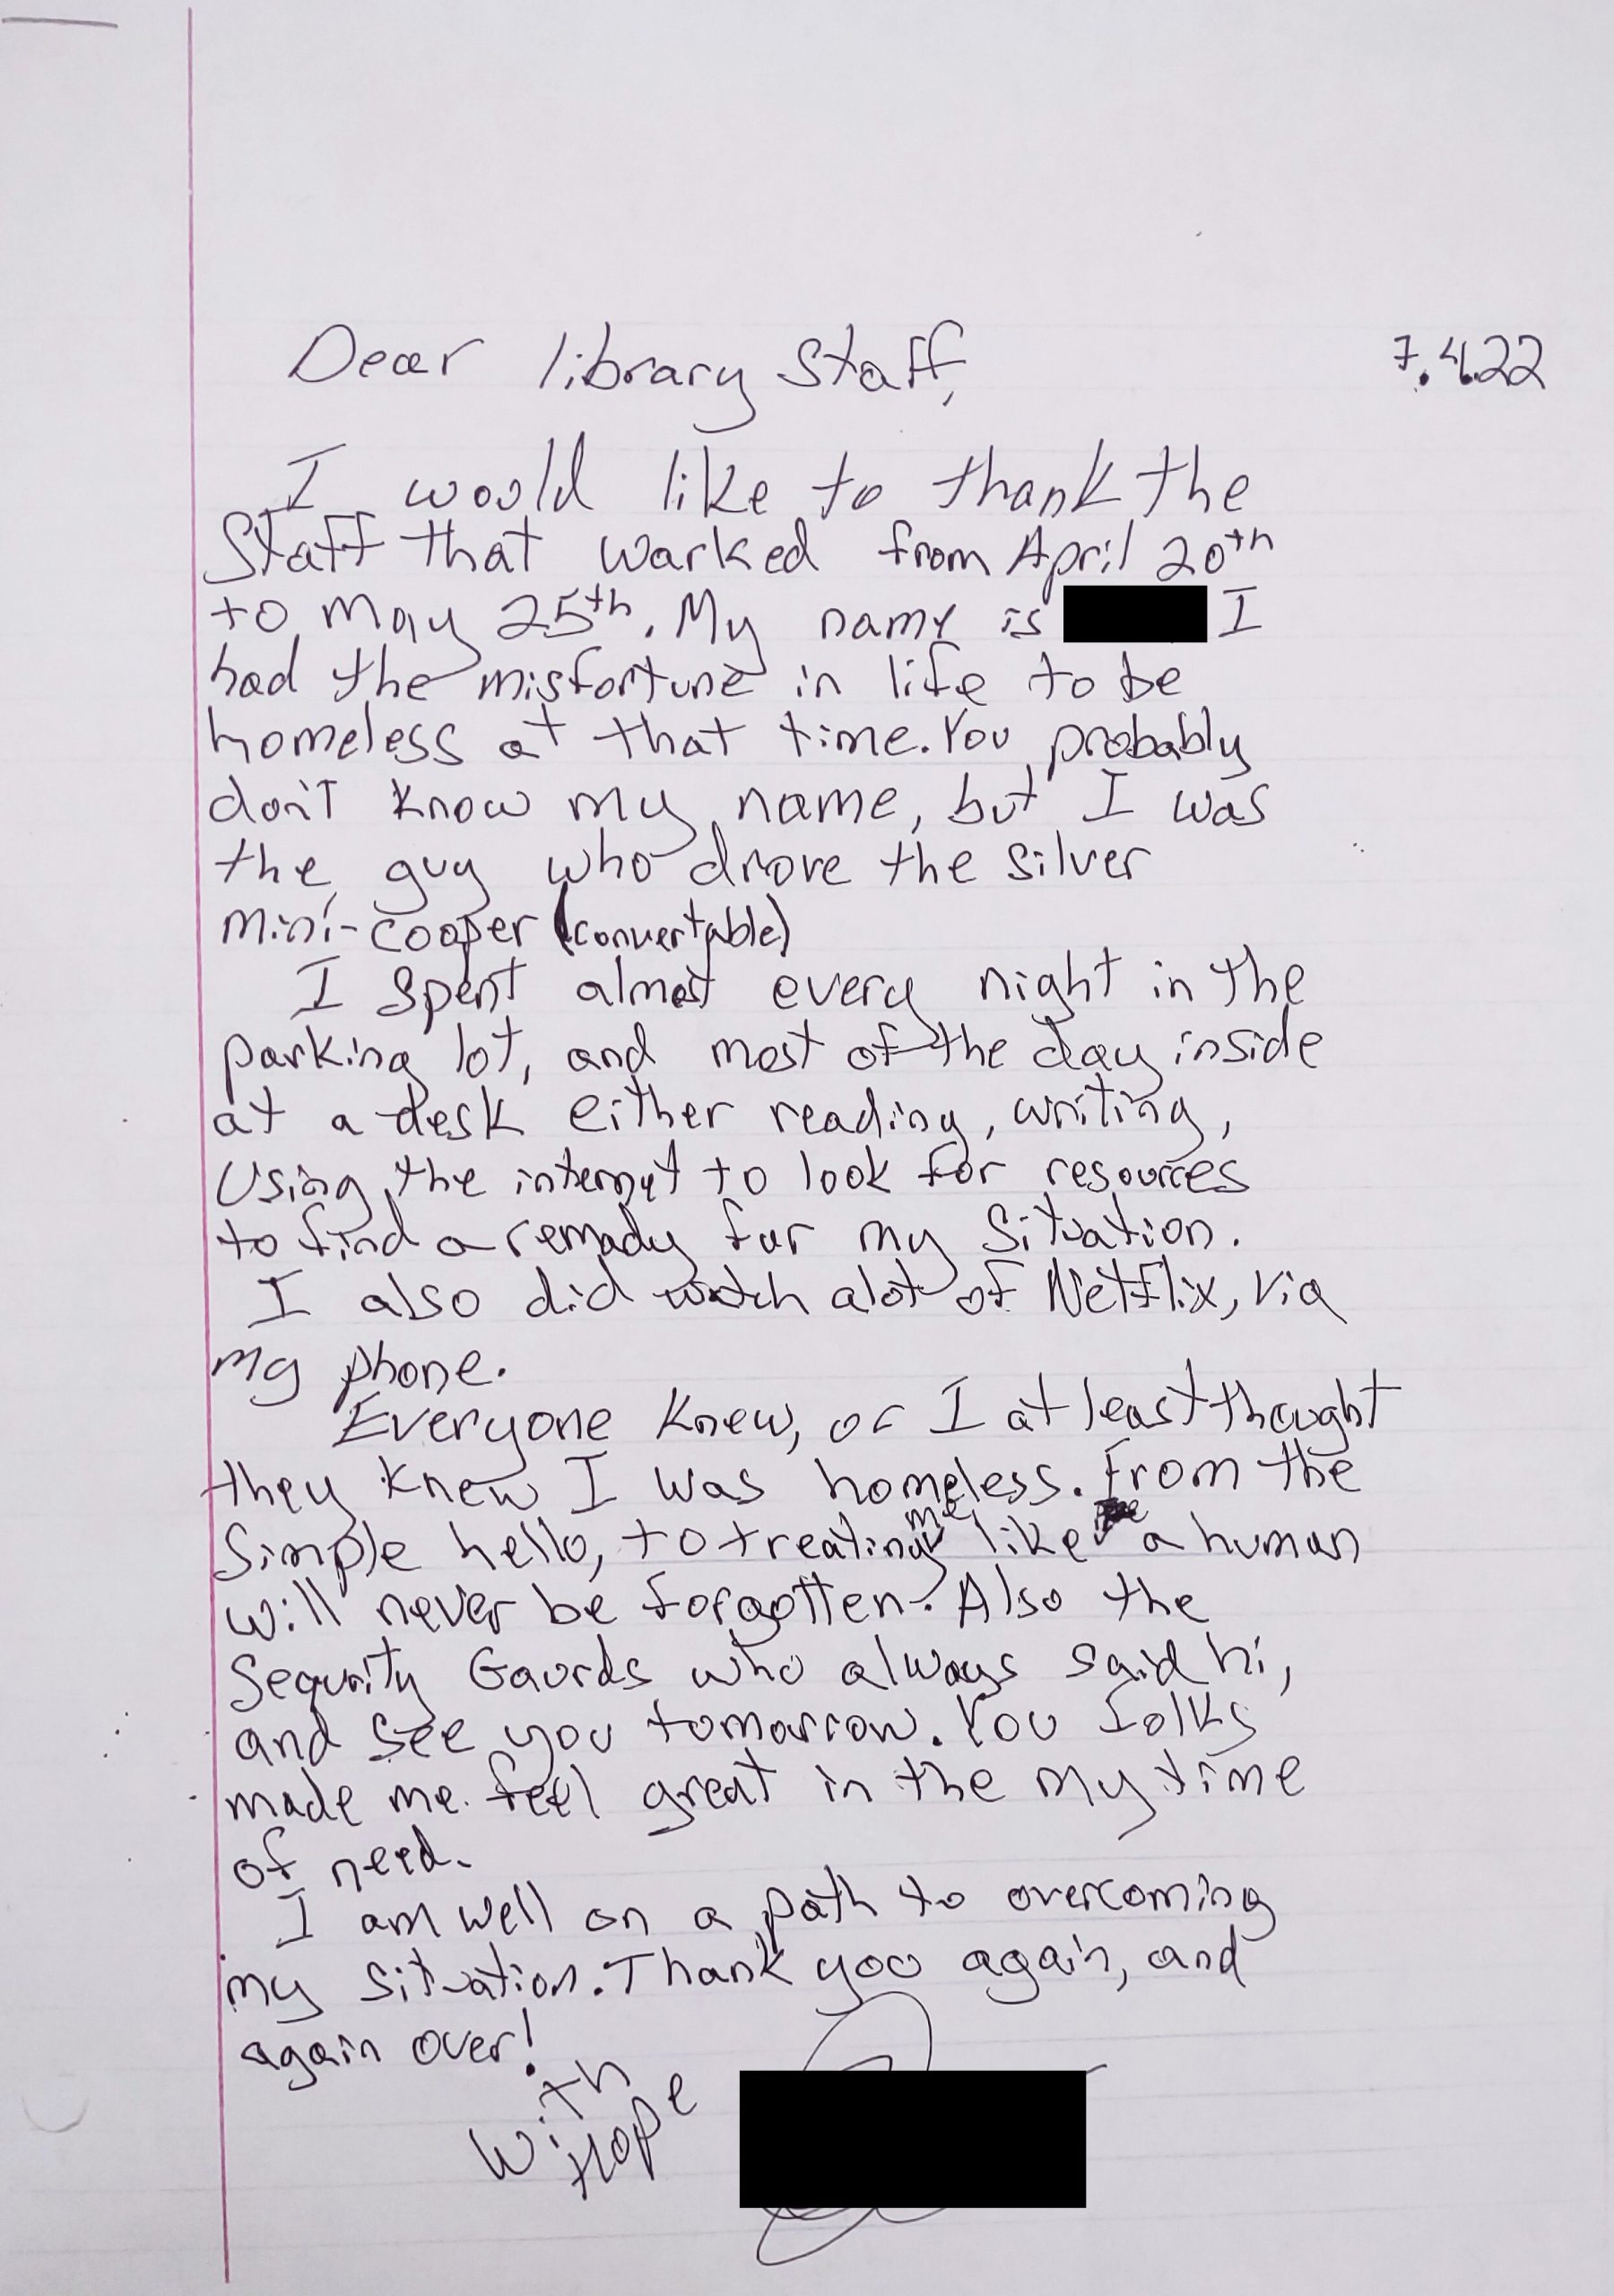 7.4.22
Dear library Staff,
I would like to thank the
Staff that worked from April 20th
to May 25th. My name is I
had the misfortune in life to be
homeless at that time. You probably
don't know my name, but I was
the guy who drove the silver
Mini-cooper (convertable)
I spent almost every night in the
parking lot, and most of the day inside
at a desk either reading, writing,
Using the internet to look for resources
to find a remady for my Situation.
I also did watch alot of Netflix, via
my phone.
Everyone knew, or I at least thought
they knew I was homeless. From the
Simple hello, to treating me like a human
will never be forgotten. Also the
Sequrity Gaurds who always said hi,
and see you tomorrow. You folks
made me feel great in the my time
of need.
I am well on a path to overcoming
my situation. Thank you again, and
again over!
With
Hope